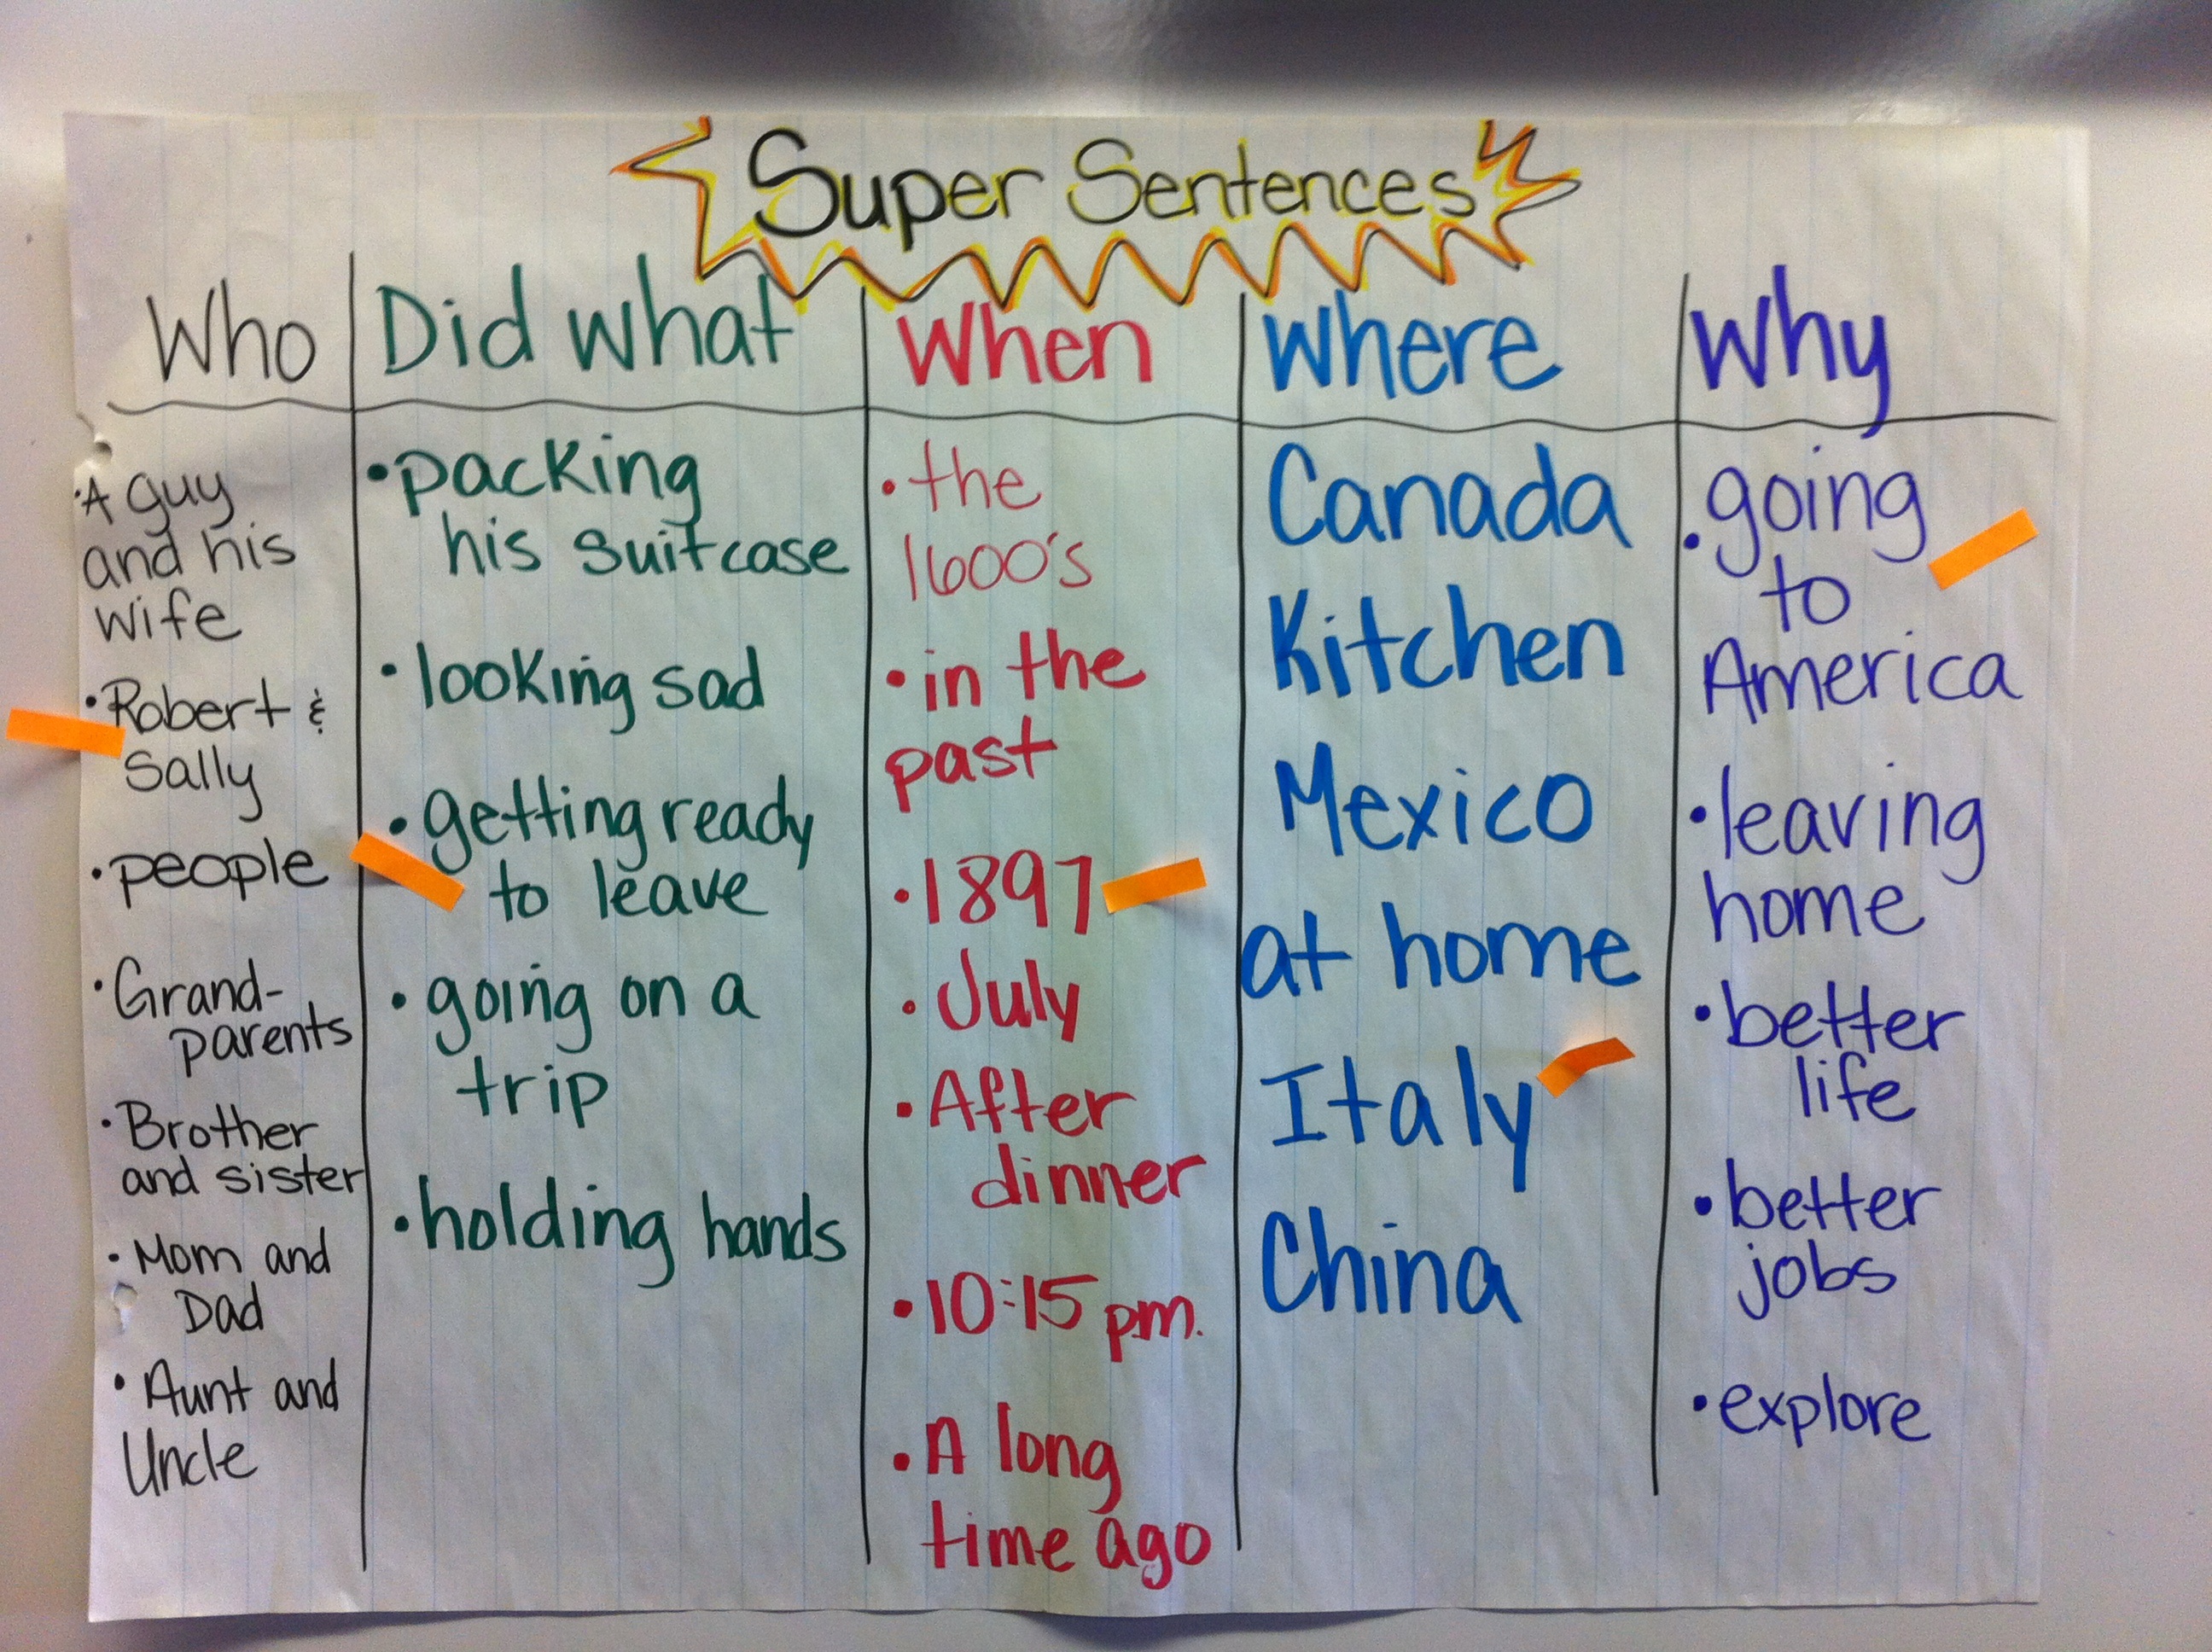 Super Sentences
Who
Did what
When
Where
Why
•A guy
and his
wife
•Robert &
Sally
•people
•Grand-
parents
•Brother
and sister
•Mom and
Dad
•Aunt and
Uncle
•packing
his suitcase
•looking sad
•getting ready
to leave
•going on a
trip
•holding hands
•the
1600's
•in the
past
•1897
•July
•After
dinner
•10:15 pm.
•A long
time ago
Canada
Kitchen
Mexico
at home
Italy
China
•going
to
America
•leaving
home
•better
life
•better
jobs
•explore